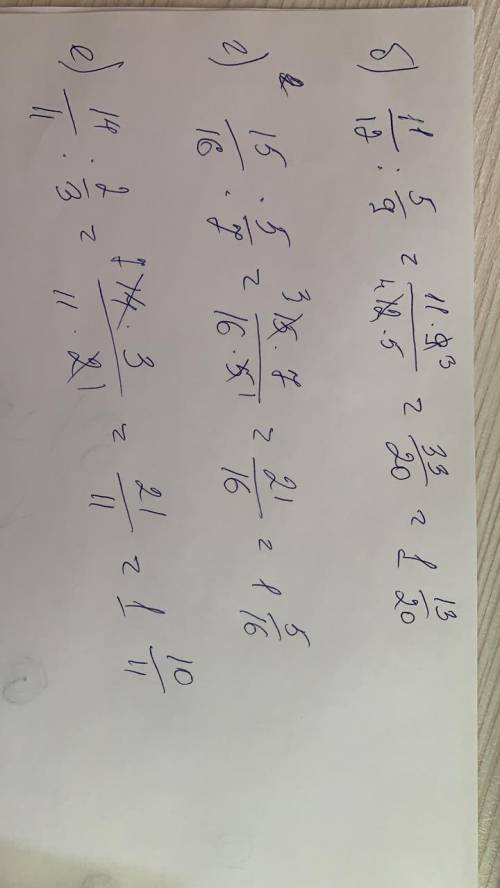 б) 11/12 : 5/9 = 11·9 3/4 12·5 = 33/20 = 1 13/20
г) 15/16 : 5/7 = 3 15·7/16·5 1 = 21/16 = 1 5/16
е) 14/11 : 2/3 = 7 14·3/11·2 1 = 21/11 = 1 10/11